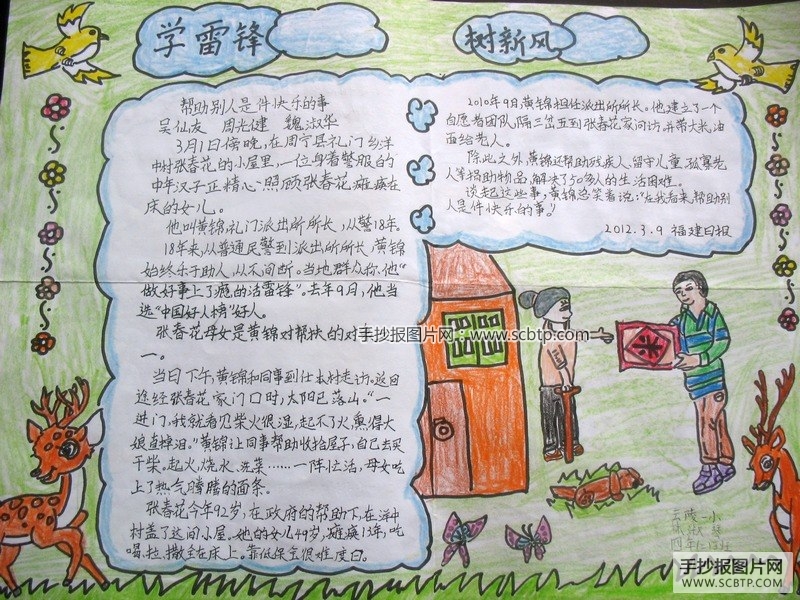 学雷锋
树新风
帮助别人是件快乐的事
吴仙友 周先健 魏淑华
3月1日傍晚,在周宁县礼门乡洋
中村张春花的小屋里,一位身着警服的
中年汉子正精心照顾张春花瘫痪在
床的女儿。
他叫黄锦,礼门派出所所长,从警18年。
18年来,从普通民警到派出所所长,黄锦
始终乐于助人,从不间断。当地群众称他"
做好事上了瘾的活雷锋"。去年9月,他当
选"中国好人榜"好人。
张春花母女是黄锦对帮扶的对
一。
当日下午,黄锦和同事到仕本村走访。返回
途经张春花家门口时,太阳已落山。"一
进门,我就看见柴火很湿,起不了火,熏得大
娘直掉泪。"黄锦让同事帮助收拾屋子,自己去买
干柴。起火,烧水、洗菜……一阵忙活,母女吃
上了热气腾腾的面条。
张春花今年92岁,在政府的帮助下,在洋中
村盖了这间小屋。她的女儿49岁,瘫痪13年,吃
喝、拉、撒全在床上,靠低保金很难度日。
2010年9月,黄锦担任派出所所长。他建立了一个
自愿者团队,隔三岔五到张春花家问访,并带大米,油
面给老人。
除此之外,黄锦还帮助残疾人、留守儿童、孤寡老
人等捐助物品,解决了50多人的生活困难。
谈起这些事,黄锦总笑着说:"在我看来,帮助别
人是件快乐的事。"
2012.3.9 福建日报
手抄报图片网:www.scbtp.com
米
手抄报图片网
WWW.SCBTP.COM